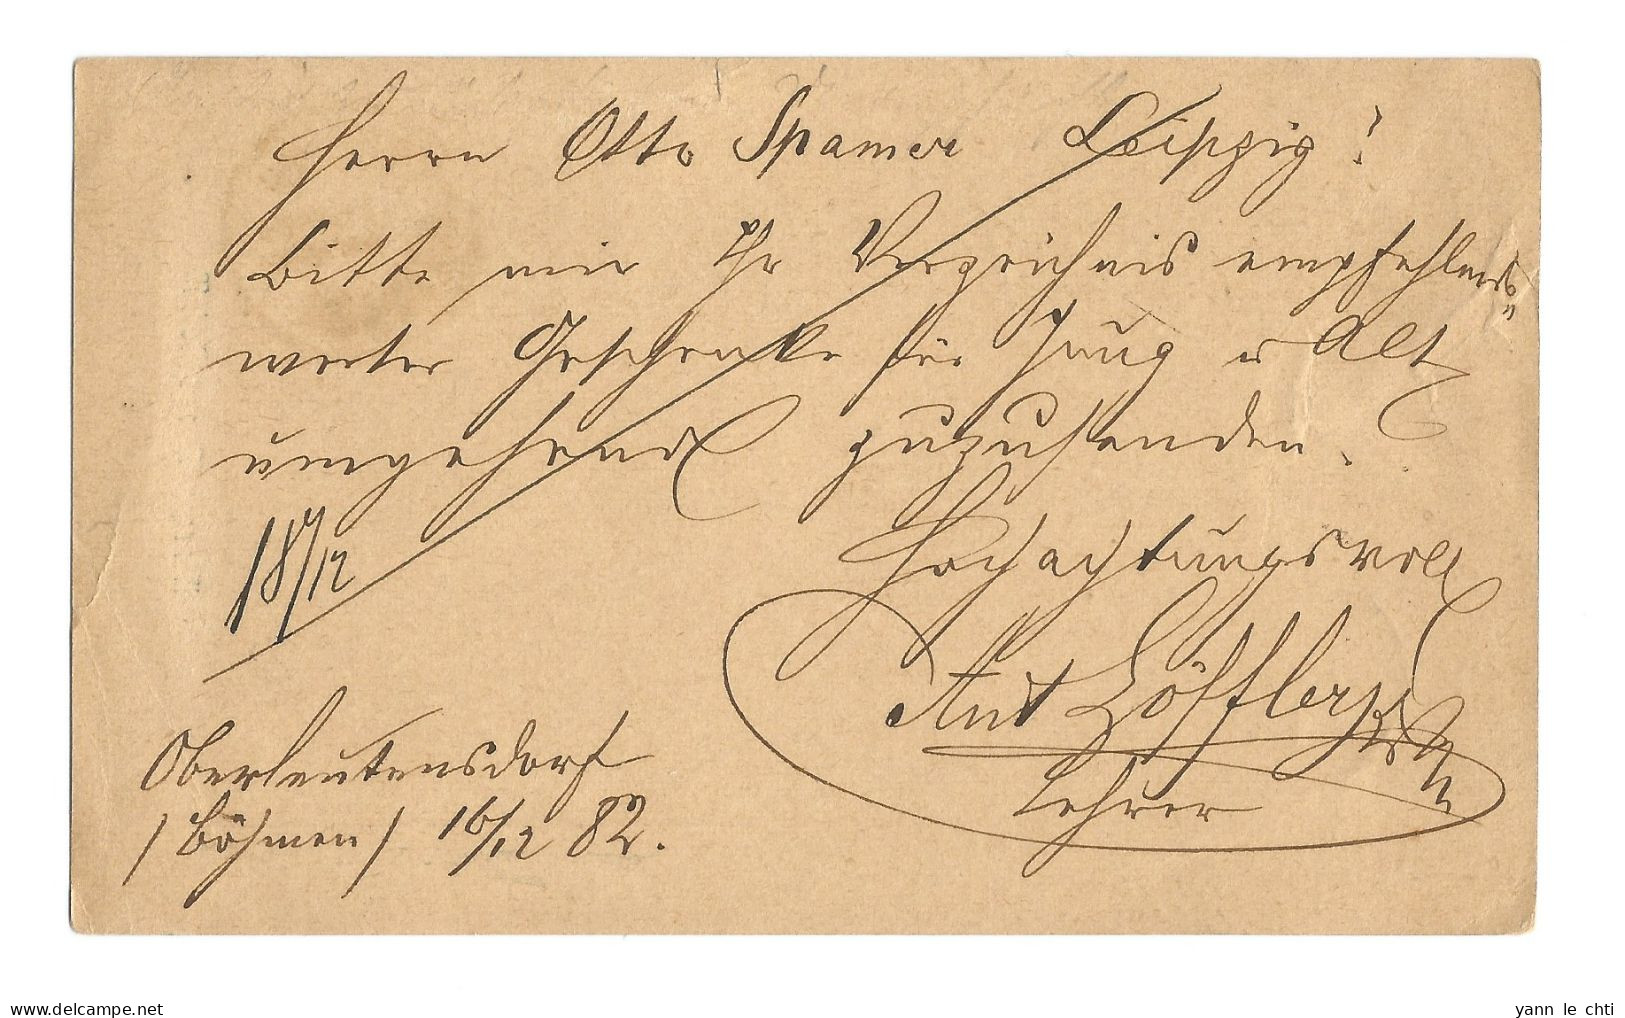 Herrn Otto Spamer Leipzig!
Bitte mir Ihr Verzeichnis empfehlens=
werter Geschenke für Jung u Alt
umgehend zuzusenden.
Hochachtungsvoll
18/12
Ant Löffler
Lehrer
Oberleutensdorf
/Böhmen/ 16/12 82.
delcampe.net
yann le chti